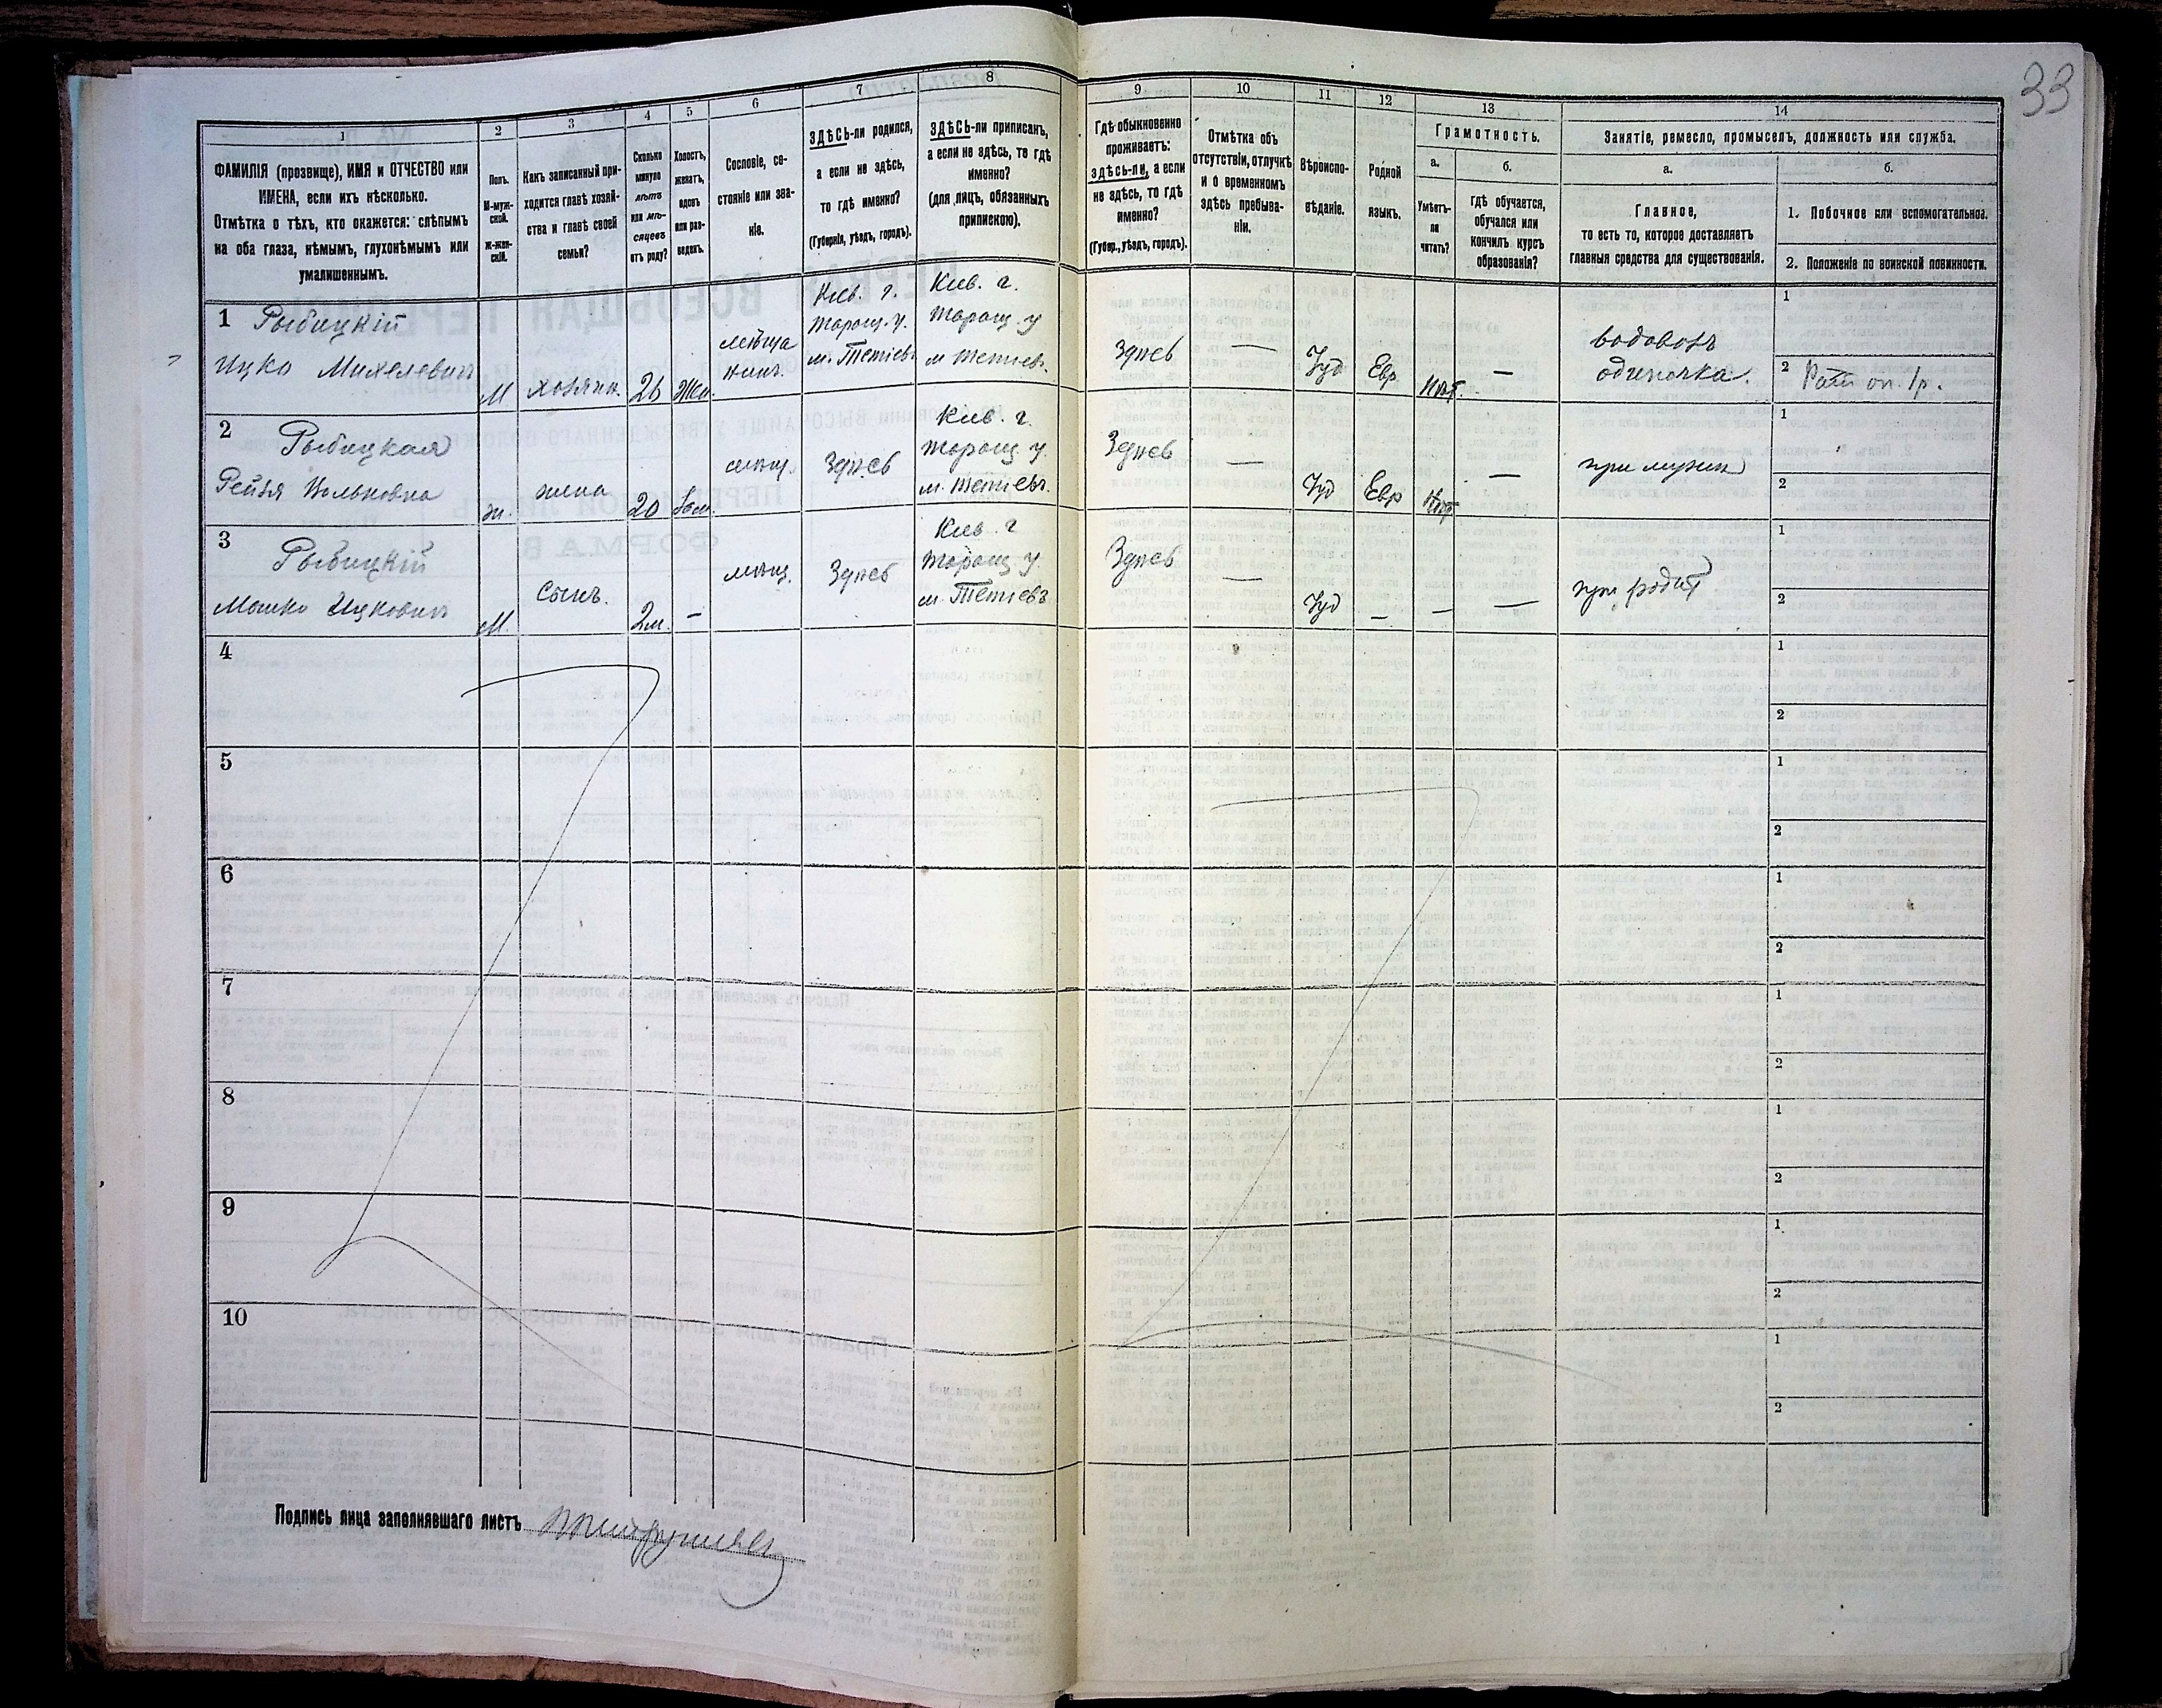 33
1
ФАМИЛІЯ (прозвище), ИМЯ и ОТЧЕСТВО или
ИМЕНА, если ихъ нѣсколько.
Отмѣтка о тѣхъ, кто окажется: слѣпымъ
на оба глаза, нѣмымъ, глухонѣмымъ или
умалишеннымъ.
2
Полъ.
М-муж-
ской.
Ж-жен-
скій.
3
Какъ записанный при-
ходится главѣ хозяй-
ства и главѣ своей
семьи?
4
Сколько
минуло
лѣтъ
или мѣ-
сяцевъ
отъ роду?
5
Холостъ,
женатъ,
вдовъ
или раз-
веденъ.
6
Сословіе, со-
стояніе или зва-
ніе.
7
ЗДѢСЬ-ли родился,
а если не здѣсь,
то гдѣ именно?
(Губернія, уѣздъ, городъ).
8
ЗДѢСЬ-ли приписанъ,
а если не здѣсь, то гдѣ
именно?
(для лицъ, обязанныхъ
припискою).
9
Гдѣ обыкновенно
проживаетъ:
здѣсь-ли, а если
не здѣсь, то гдѣ
именно?
(Губер., уѣздъ, городъ).
10
Отмѣтка объ
отсутствіи, отлучкѣ
и о временномъ
здѣсь пребыва-
ніи.
11
Вѣроиспо-
вѣданіе.
12
Родной
языкъ.
13
Грамотность.
а.
Умѣетъ-
ли
читать?
б.
гдѣ обучается,
обучался или
кончилъ курсъ
образованія?
14
Занятіе, ремесло, промыселъ, должность или служба.
а.
Главное,
то есть то, которое доставляетъ
главныя средства для существованія.
б.
1. Побочное или вспомогательное.
2. Положеніе по воинской повинности.
1 Рыбицкій
Ицко Михелевич
М
хозяин.
26
Жен.
мѣща
нин.
Кіев. г.
Таращ. у.
м. Тетіев
Кіев. г.
Таращ. у
м Тетіевъ.
Здѣсь
—
Іуд
Евр.
Нѣт.
—
водовозъ
одиночка.
1
2
2 Рыбицкая
Рейзя Вольковна
ж.
жена
20
Зам.
мѣщ.
Здѣсь
Кіев. г.
Таращ у.
м. Тетіевъ.
Здѣсь
—
Іуд
Евр
Нѣт
—
при муже
1
2
3 Рыбицкій
Мошко Ицкович
М.
Сынъ.
2 м.
–
мѣщ.
Здѣсь
Кіев. г
Таращ у.
м. Тетіевъ
Здѣсь
—
Іуд
–
–
—
при родит
1
2
4
1
2
5
1
2
6
1
2
7
1
2
8
1
2
9
1
2
10
1
2
Подпись лица заполнявшаго листъ